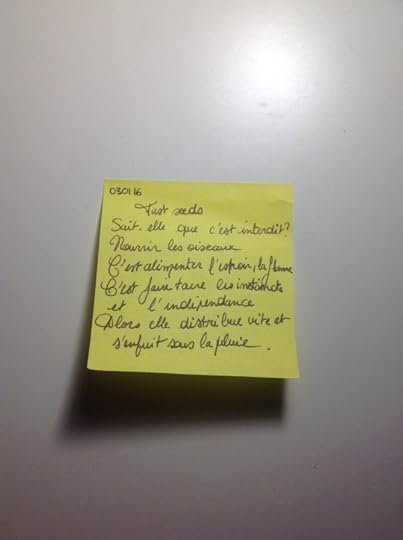 030116
Fast seeds
Sait-elle que c'est interdit?
Nourrir les oiseaux
C'est alimenter l'espoir, la flamme
C'est faire taire les instincts
et l'indépendance
Alors elle distribue vite et
s'enfuit sous la pluie.